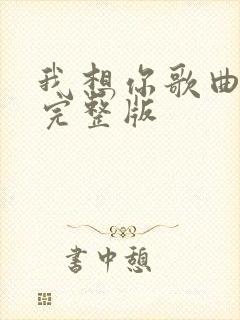 我想你歌曲
完整版
書中憩